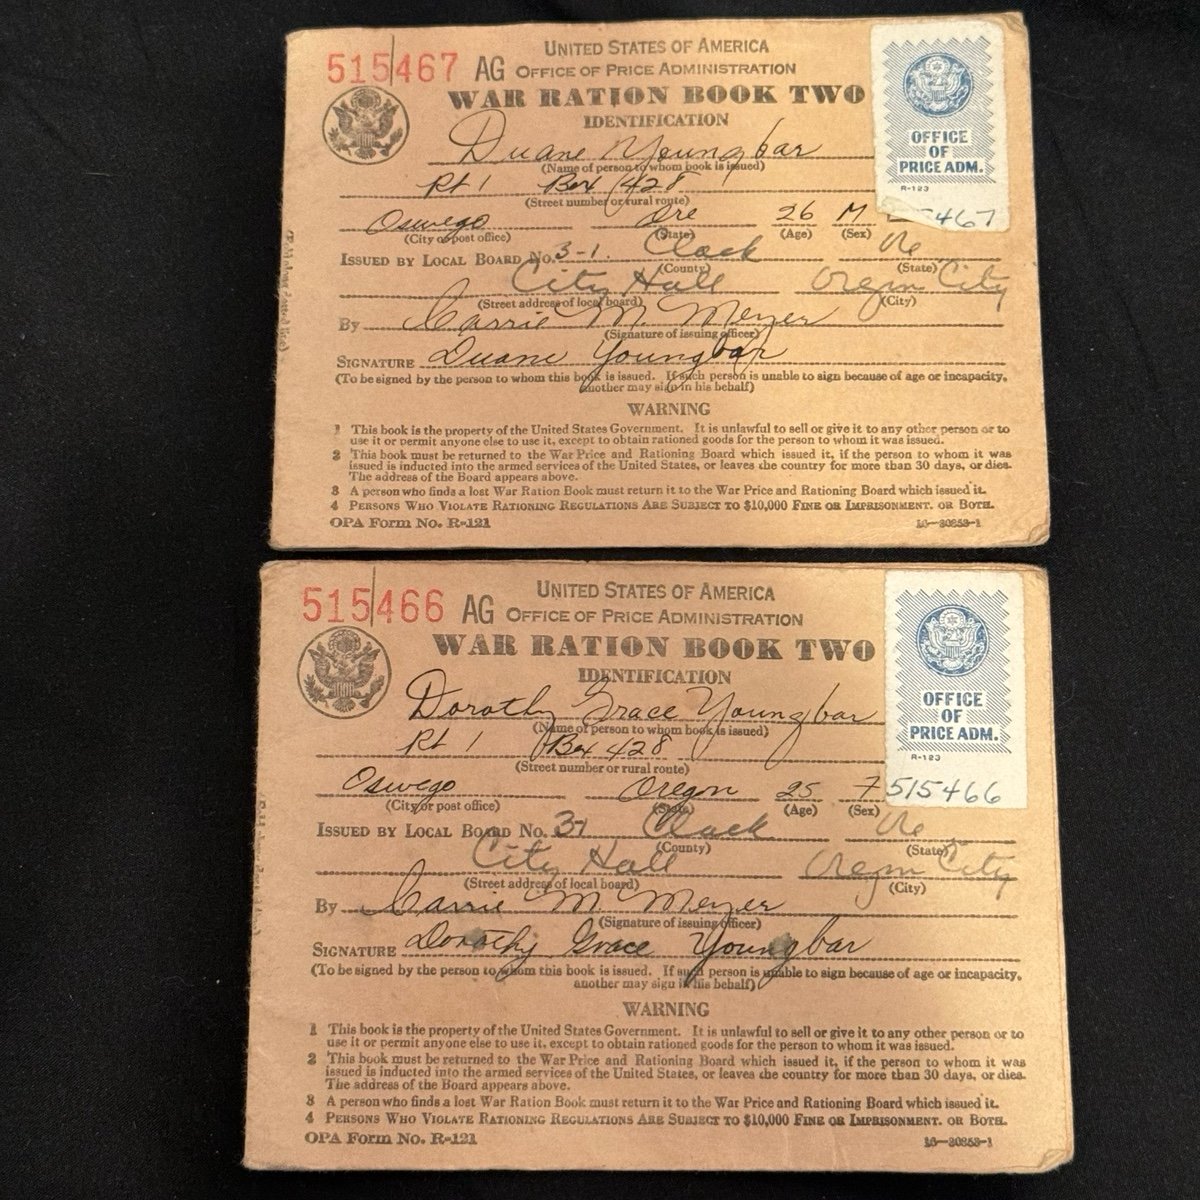 515467 AG
UNITED STATES OF AMERICA
OFFICE OF PRICE ADMINISTRATION
WAR RATION BOOK TWO
IDENTIFICATION
OFFICE
OF
PRICE ADM.
R-123
5467
Duane Youngbar
(Name of person to whom book is issued)
Rt 1 Box 428
(Street number or rural route)
Oswego Ore 26 M
(City or post office) (State) (Age) (Sex)
ISSUED BY LOCAL BOARD NO. 3-1. Clack Ore
(County) (State)
City Hall Oregon City
(Street address of local board) (City)
By Carrie M. Meyer
(Signature of issuing officer)
SIGNATURE Duane Youngbar
(To be signed by the person to whom this book is issued. If such person is unable to sign because of age or incapacity,
another may sign in his behalf)
WARNING
1 This book is the property of the United States Government. It is unlawful to sell or give it to any other person or to
use it or permit anyone else to use it, except to obtain rationed goods for the person to whom it was issued.
2 This book must be returned to the War Price and Rationing Board which issued it, if the person to whom it was
issued is inducted into the armed services of the United States, or leaves the country for more than 30 days, or dies.
The address of the Board appears above.
3 A person who finds a lost War Ration Book must return it to the War Price and Rationing Board which issued it.
4 PERSONS WHO VIOLATE RATIONING REGULATIONS ARE SUBJECT TO $10,000 FINE OR IMPRISONMENT, OR BOTH.
OPA Form No. R-121 16—30853-1
515466 AG
UNITED STATES OF AMERICA
OFFICE OF PRICE ADMINISTRATION
WAR RATION BOOK TWO
IDENTIFICATION
OFFICE
OF
PRICE ADM.
R-123
515466
Dorothy Grace Youngbar
(Name of person to whom book is issued)
Rt 1 Box 428
(Street number or rural route)
Oswego Oregon 25 F
(City or post office) (State) (Age) (Sex)
ISSUED BY LOCAL BOARD NO. 3-1 Clack Ore
(County) (State)
City Hall Oregon City
(Street address of local board) (City)
By Carrie M. Meyer
(Signature of issuing officer)
SIGNATURE Dorothy Grace Youngbar
(To be signed by the person to whom this book is issued. If such person is unable to sign because of age or incapacity,
another may sign in his behalf)
WARNING
1 This book is the property of the United States Government. It is unlawful to sell or give it to any other person or to
use it or permit anyone else to use it, except to obtain rationed goods for the person to whom it was issued.
2 This book must be returned to the War Price and Rationing Board which issued it, if the person to whom it was
issued is inducted into the armed services of the United States, or leaves the country for more than 30 days, or dies.
The address of the Board appears above.
3 A person who finds a lost War Ration Book must return it to the War Price and Rationing Board which issued it.
4 PERSONS WHO VIOLATE RATIONING REGULATIONS ARE SUBJECT TO $10,000 FINE OR IMPRISONMENT, OR BOTH.
OPA Form No. R-121 16—30853-1